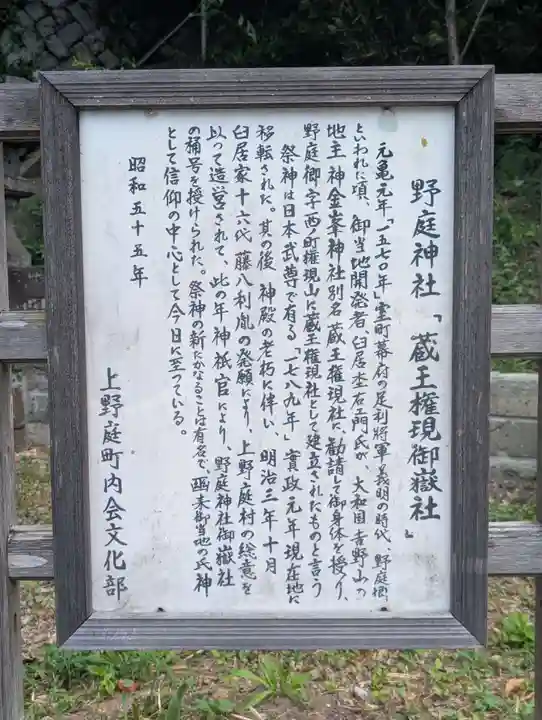 野庭神社「蔵王権現御嶽社」
元亀元年「一五七〇年」室町幕府の足利将軍義明の時代、野庭郷
といわれた頃、御当地開発者、臼居杢右ヱ門氏が、大和国吉野山の
地主神金峯神社別名蔵王権現社に、勧請して御身体を授り、
野庭郷字西ノ町権現山に蔵王権現社として建立されたものと言う
祭神は日本武尊で有る「一七八九年」寛政元年現在地に
移転された。其の後神殿の老朽に伴い、明治三年十月
臼居家十六代藤八利胤の発願により、上野庭村の総意を
以って造営されて、此の年神祇官により、野庭神社御嶽社
の称号を授けられた。祭神の新たかなることは有名で、爾来御当地の氏神
として信仰の中心として今日に至っている。
昭和五十五年
上野庭町内会文化部